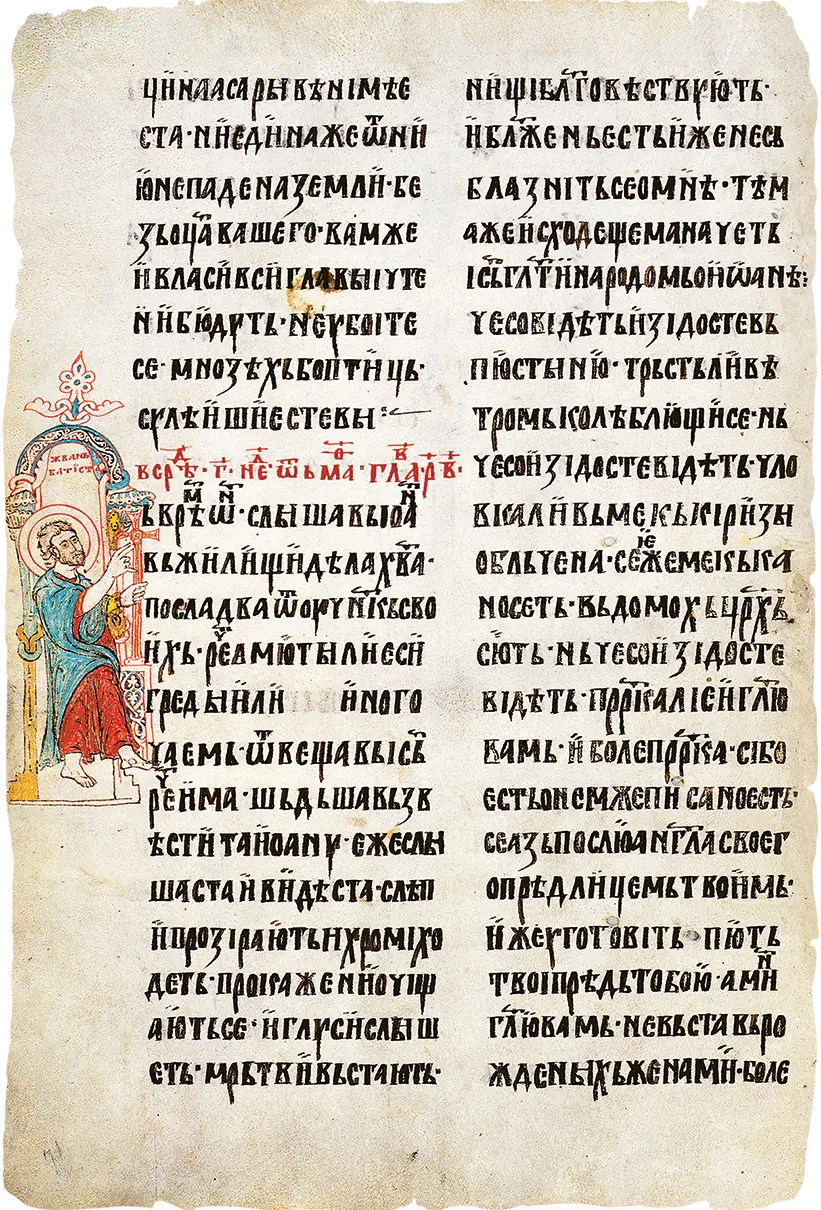 ЖВАНЬ
БАТИСТА
ЦИ НА АСАРЫ ВЬНІМѢЕ
СТА · Н҄ИЕДИНА ЖЕ Ѿ Н҄И
Ю НЕПАДЕ НА ЗЕМЛИ · БЕ
ЗЬ ОЦ҃А ВАШЕГО · ВАМ ЖЕ
И ВЛАСИ ВСИ ГЛАВЫІ ЧТЕ
НИ БЮДУТЬ · НЕ УБОІТЕ
СЕ · МНОЗѢХЬ БО ПТИЦЬ ·
СУЛѢИШИ ЕСТЕ ВЫ ⁘
ВСРѢ · Г · НЕ҃Д · Ѿ ЬМА · ГЛА · Р҃В ·
Ь ВРѢМ Ѿ · СЛЫША ВЬ ІОАН
ВЬ ЖИЛИЩИ ДѢЛА Х҃ВА ·
ПОСЛА ДВА Ѿ ОУЧН҃ІКЬ СВО
ИХЬ · РЕЧ҃ ЕМЮ ТЫ ЛИ ЕСИ
ГРЕДЫИ ИЛИ ИНОГО
ЧАЕМЬ · ѾВЕЩАВЬ ІС҃Ь
РЕЧ҃ ИМА · ШЬДЬША ВЬЗВ
ѢСТИТА ИОАНУ · ЕЖЕ СЛЫ
ШАСТА И ВИДѢСТА · СЛѢП
И ПРОЗІРАЮТЬ И ХРОМІ ХО
ДЕТЬ · ПРОКАЖЕНИ ОЧИЩ
АЮТЬ СЕ · И ГЛУСИ СЛЫШ
ЕТЬ · МРЬТВИ ВЬСТАЮТЬ ·
НИЩІ БЛ҃ГОВѢСТВУЮТЬ ·
И БЛ҃ЖЕНЬ ЕСТЬ ИЖЕ НЕ СЬ
БЛАЗНІТЬ СЕ О МНѢ · ТѢМ
А ЖЕ ИСХОДЕЩЕМА НАЧЕТЬ
ІС҃Ь ГЛ҃ТИ НАРОДОМЬ О ИѠАНѢ ⁝
ЧЕСО ВІДѢТЬ ИЗІДОСТЕ ВЬ
ПЮСТЫНИЮ · ТРЬСТЬ ЛИ ВѢ
ТРОМЬ КОЛѢБЛЮЩИ СЕ · НЬ
ЧЕСО ИЗІДОСТЕ ВІДѢТЬ · ЧЛО
ВКА ЛИ ВЬ МЕКЬКІ РІЗЫ
ОБЛЬЧЕНА · СЕ ИЖЕ МЕКЬКА
НОСЕТЬ · ВЬ ДОМОХЬ ЦР҃ХЬ
СЮТЬ · НЬ ЧЕСО ИЗІДОСТЕ
ВІДѢТЬ · ПРР҃КА ЛІ ЕИ ГЛ҃Ю
ВАМЬ · И БОЛЕ ПРР҃КА · СІ БО
ЕСТЬ О НЕМЖЕ ПИСАНО ЕСТЬ ·
СЕ АЗЬ ПОСЛЮ АНГ҃ЛА СВОЕГ
О ПРѢД ЛИЦЕМЬ ТВОИМЬ ·
ИЖЕ УГОТОВІТЬ ПЮТЬ
ТВОІ ПРѢДЬ ТОБОЮ · АМИН
ГЛ҃Ю ВАМЬ · НЕ ВЬСТА ВЬ РО
ЖДЕНЫХЬ ЖЕНАМИ · БОЛЕ